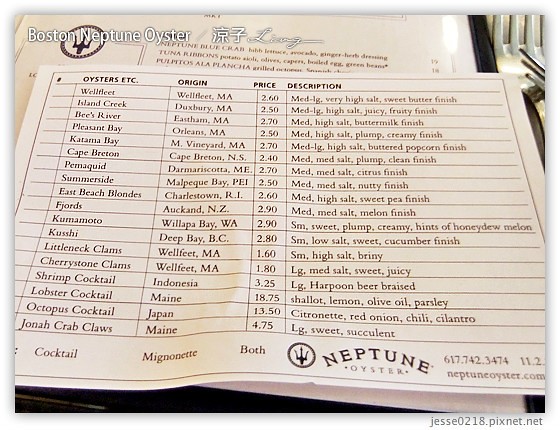 Boston Neptune Oyster 涼子 Ling
MKT
NEPTUNE BLUE CRAB bibb lettuce, avocado, ginger-herb dressing
TUNA RIBBONS potato aioli, olives, capers, boiled egg, green beans* 19
PULPITOS ALA PLANCHA grilled octopus, 18
# OYSTERS ETC. ORIGIN PRICE DESCRIPTION
Wellfleet Wellfleet, MA 2.60 Med-lg, very high salt, sweet butter finish
Island Creek Duxbury, MA 2.50 Med-lg, high salt, juicy, fruity finish
Bee's River Eastham, MA 2.70 Med, high salt, buttermilk finish
Pleasant Bay Orleans, MA 2.50 Med, high salt, plump, creamy finish
Katama Bay M. Vineyard, MA 2.70 Med-lg, high salt, buttered popcorn finish
Cape Breton Cape Breton, N.S. 2.40 Med, med salt, plump, clean finish
Pemaquid Damariscotta, ME. 2.70 Med, med salt, citrus finish
Summerside Malpeque Bay, PEI 2.50 Med, med salt, nutty finish
East Beach Blondes Charlestown, R.I. 2.60 Med, high salt, sweet pea finish
Fjords Auckand, N.Z. 2.90 Med, med salt, melon finish
Kumamoto Willapa Bay, WA 2.90 Sm, sweet, plump, creamy, hints of honeydew melon
Kusshi Deep Bay, B.C. 2.80 Sm, low salt, sweet, cucumber finish
Littleneck Clams Wellfeet, MA 1.60 Sm, high salt, briny
Cherrystone Clams Wellfeet, MA 1.80 Lg, med salt, sweet, juicy
Shrimp Cocktail Indonesia 3.25 Lg, Harpoon beer braised
Lobster Cocktail Maine 18.75 shallot, lemon, olive oil, parsley
Octopus Cocktail Japan 13.50 Citronette, red onion, chili, cilantro
Jonah Crab Claws Maine 4.75 Lg, sweet, succulent
: Cocktail Mignonette Both NEPTUNE 617.742.3474 11.2.
·OYSTER· neptuneoyster.com
jesse0218.pixnet.net